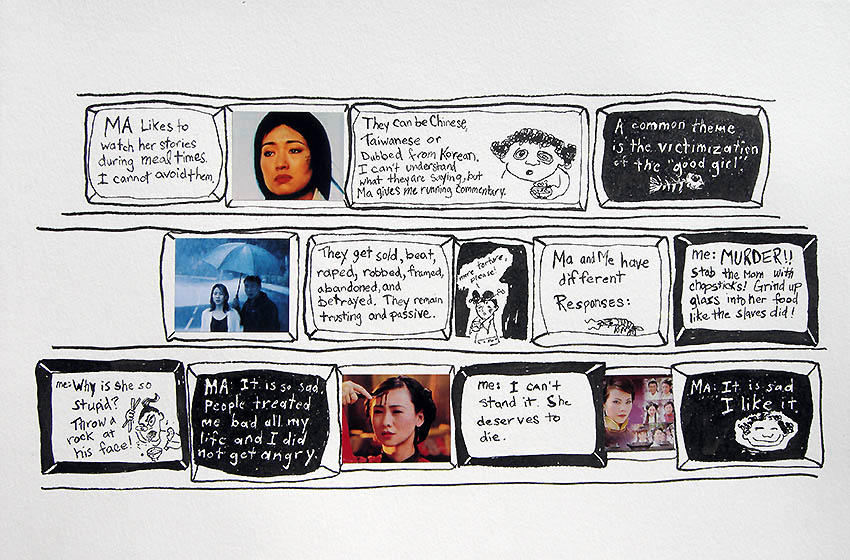 MA Likes to
watch her stories
during meal times.
I cannot avoid them.
They can be Chinese,
Taiwanese or
Dubbed from Korean.
I can't understand
what they are saying, but
Ma gives me running commentary.
A common theme
is the victimization
of the "good girl".
They get sold, beat,
raped, robbed, framed,
abandoned, and
betrayed. They remain
trusting and passive.
more torture,
please!
Ma and Me have
different
Responses:
me: MURDER!!
Stab the Mom with
chopsticks! Grind up
glass into her food
like the slaves did!
me: Why is she so
stupid?
Throw a
rock at
his face!
MA: It is so sad.
People treated
me bad all my
life and I did
not get angry.
me: I can't
stand it. She
deserves to
die.
MA: It is sad
I like it.